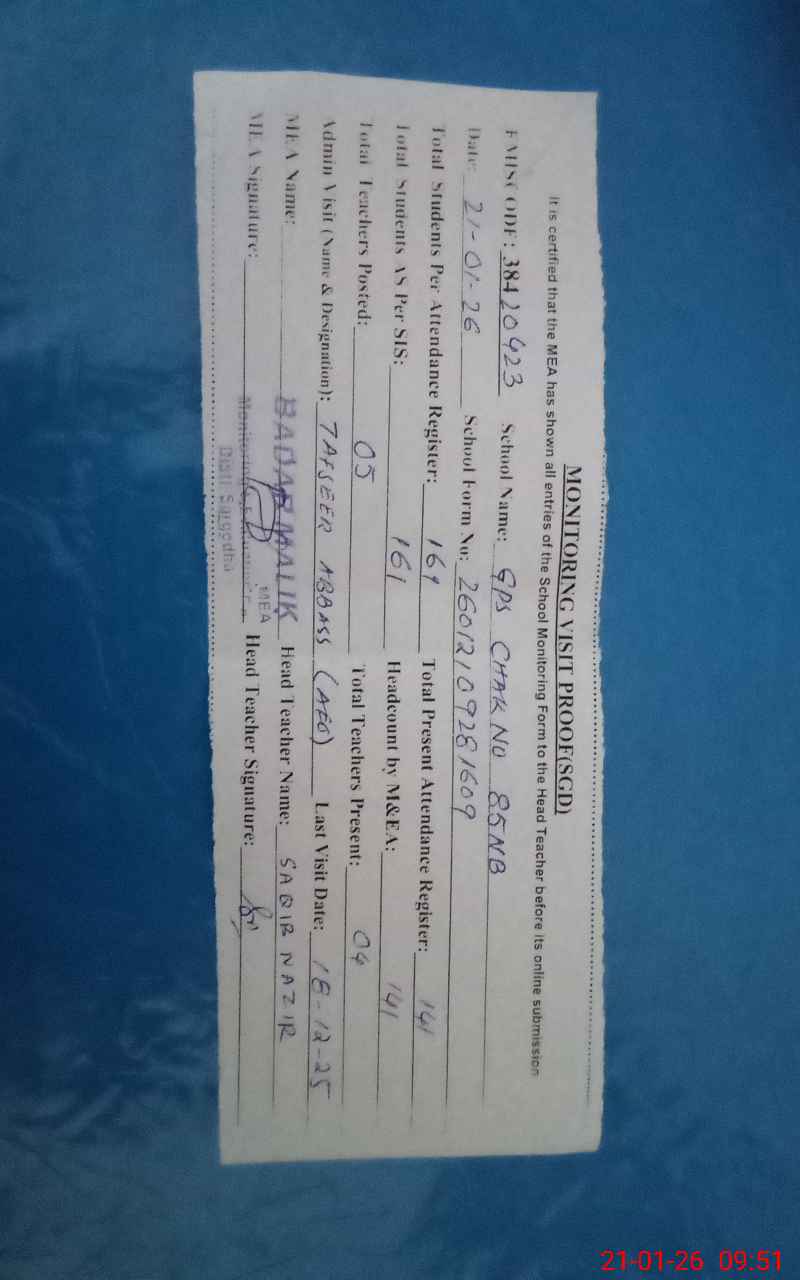 MONITORING VISIT PROOF(SGD)
It is certified that the MEA has shown all entries of the School Monitoring Form to the Head Teacher before its online submission
EMISCODE: 38420423 School Name: GPS CHAK NO 85NB
Date: 21-01-26 School Form No: 26012109281609
Total Students Per Attendance Register: 161 Total Present Attendance Register: 141
Total Students AS Per SIS: 161 Headcount by M&EA: 141
Total Teachers Posted: 05 Total Teachers Present: 04
Admin Visit (Name & Designation): TAFSEER ABBASS (AEO) Last Visit Date: 18-12-25
MEA Name: BADAR MALIK Head Teacher Name: SAQIB NAZIR
MEA Signature: MEA Head Teacher Signature:
Distt Sargodha
21-01-26 09:51